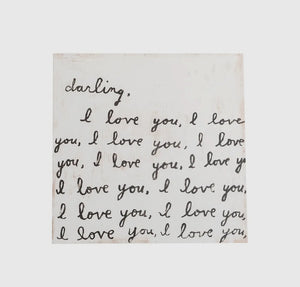 darling,
I love you, I love
you, I love you, I love
you, I love you, I love yo
I love you, I love you,
I love you, I love you,
I love you, I love you,